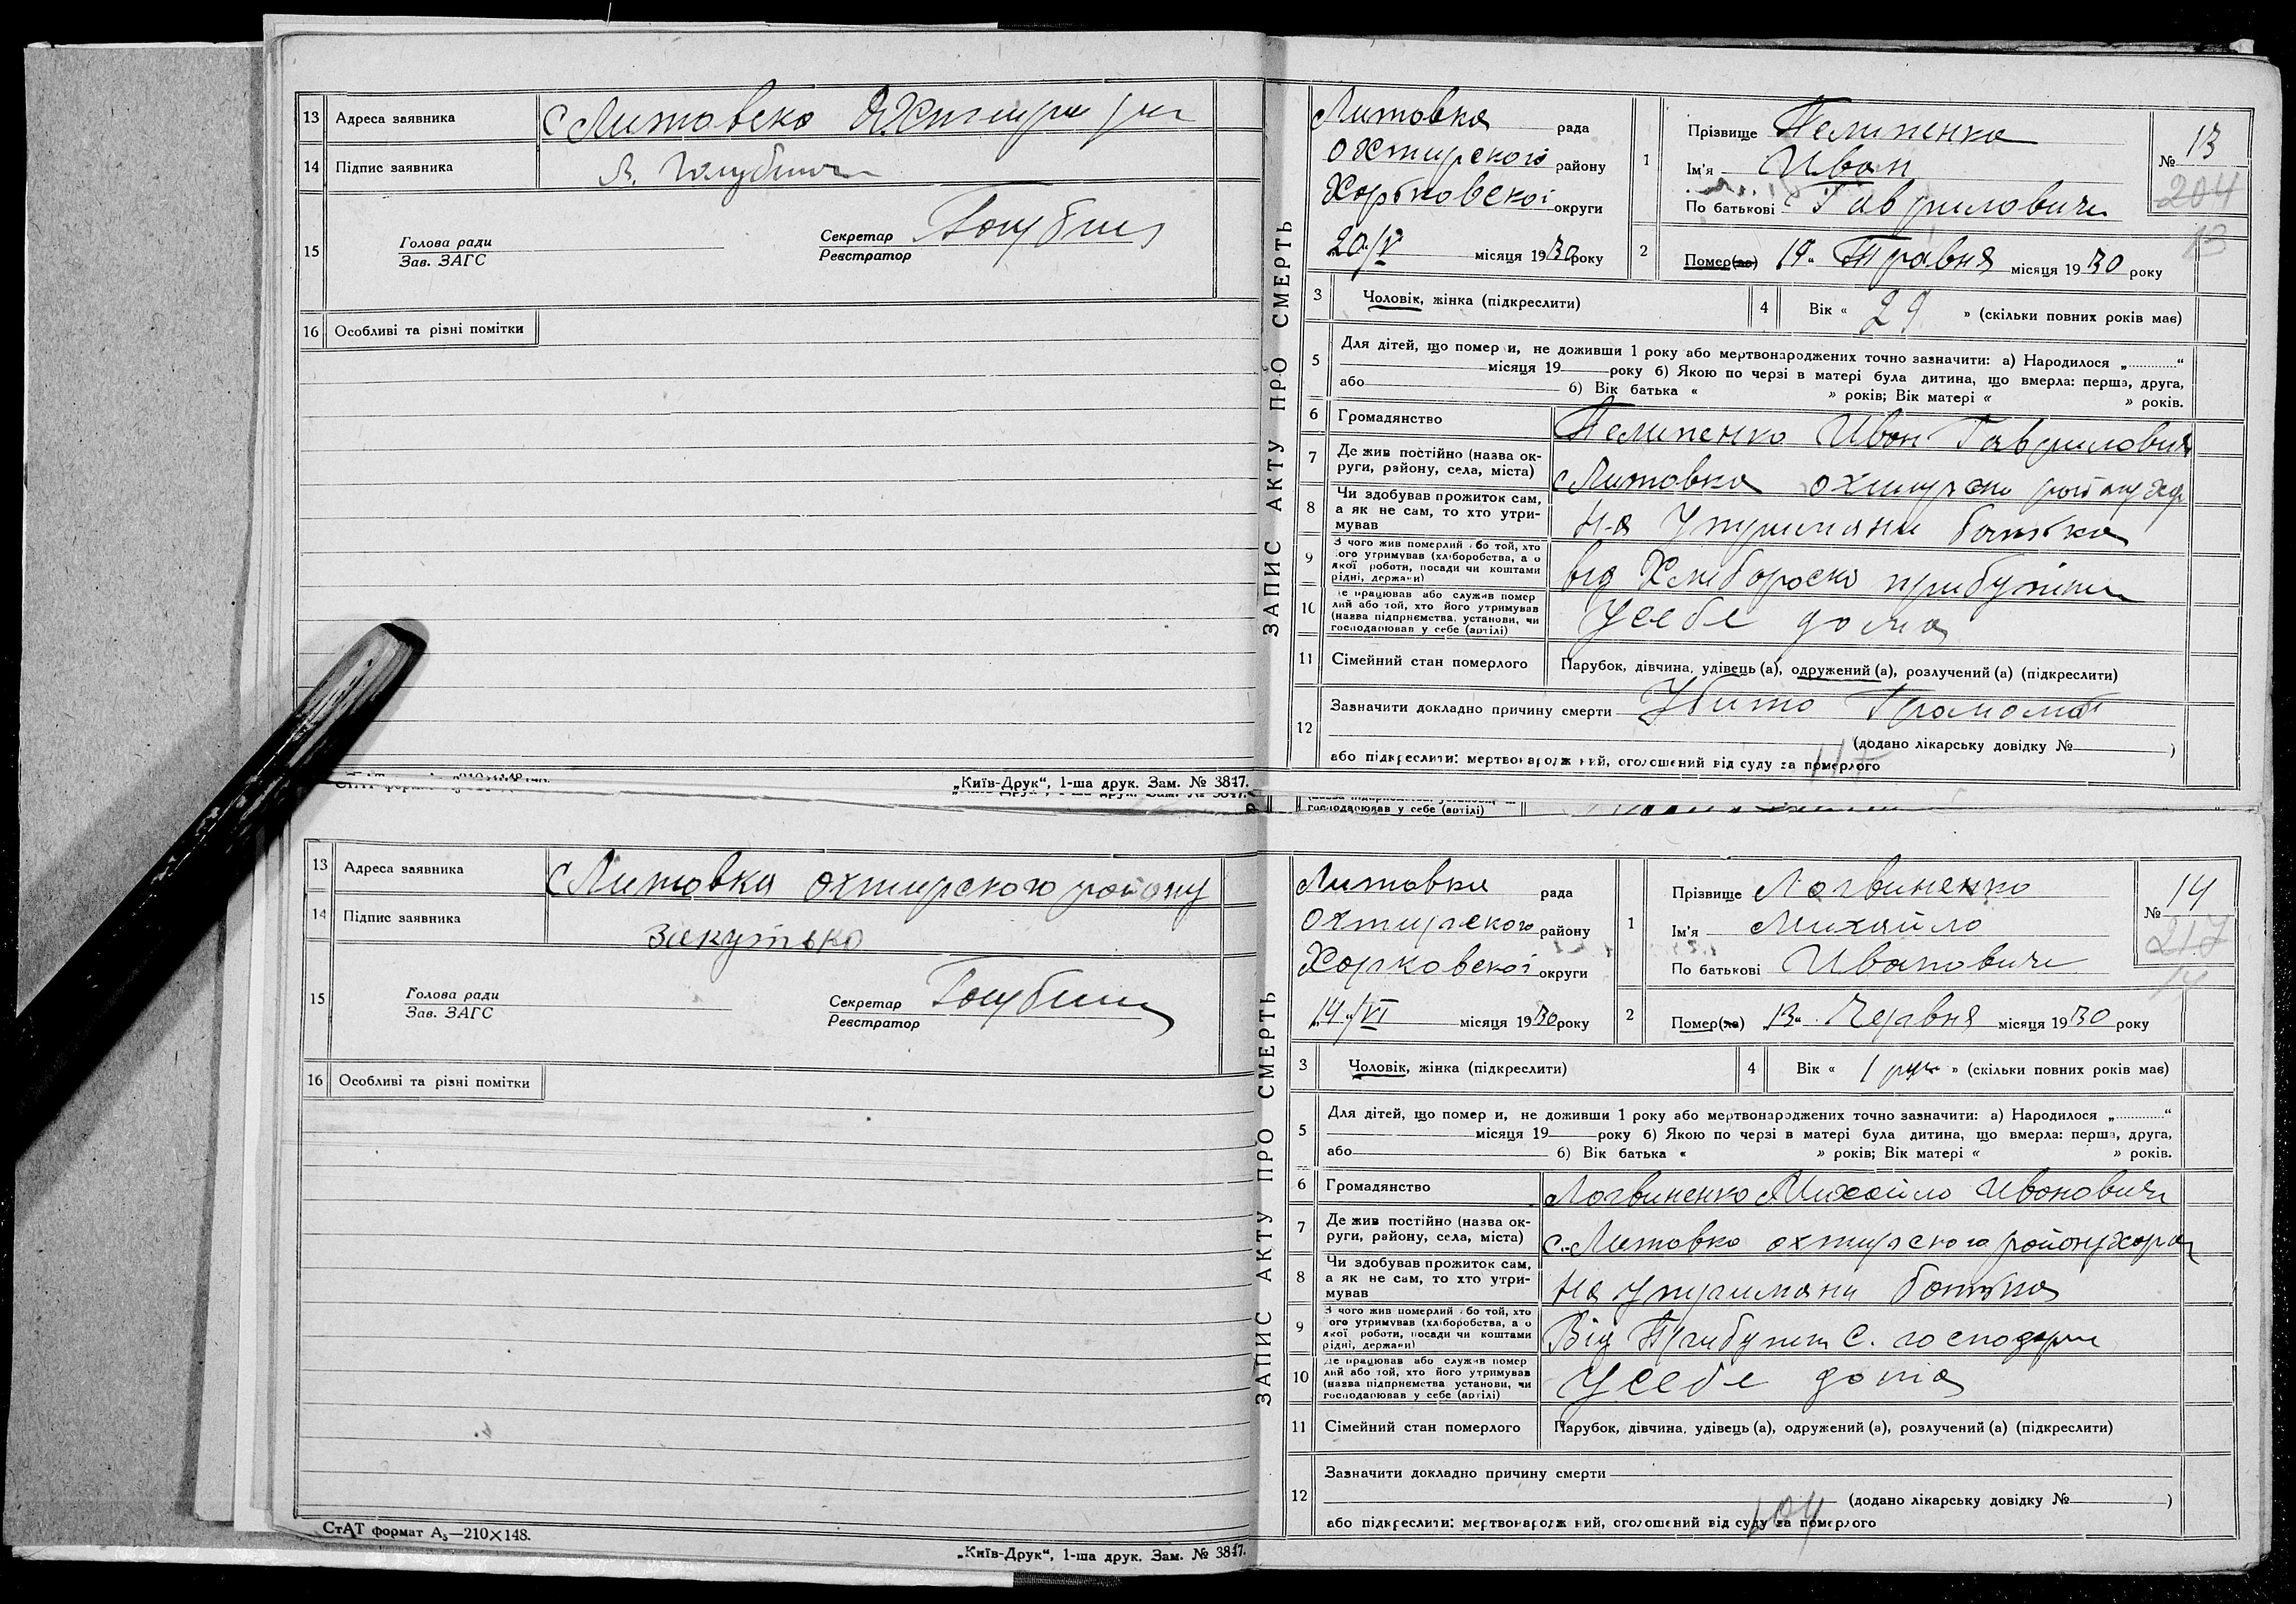 13 Адреса заявника с Литовско Охтирри рн
14 Підпис заявника
15 Голова ради
Зав. ЗАГС
Секретар
Реєстратор
16 Особливі та різні помітки
„Київ-Друк“, 1-ша друк. Зам. № 3847.
ЗАПИС АКТУ ПРО СМЕРТЬ
Литовка рада
охтирского району
Харьковскоі округи
20/V місяця 1930 року
1 Прізвище Пелипенко
Ім'я Иван
По батькові Гавриловичь
№ 13
204
13
2 Помер(ла) 19 Травня місяця 1930 року
3 Чоловік, жінка (підкреслити)
4 Вік « 29 » (скільки повних років має)
5 Для дітей, що помер и, не доживши 1 року або мертвонароджених точно зазначити: а) Народилося „ “
місяця 19 року б) Якою по черзі в матері була дитина, що вмерла: перша, друга,
або б) Вік батька « » років; Вік матері « » років.
6 Громадянство Пелипенко Иван Гаврилович
7 Де жив постійно (назва ок-
руги, району, села, міста) с Литовка охтирско району хар
8 Чи здобував прожиток сам,
а як не сам, то хто утри-
мував на утримани батька
9 З чого жив померлий або той, хто
його утримував (хліборобства, а о
якої роботи, посади чи коштами
рідні, держави) від Хлібороско прибутки
10 Де працював або служив помер
лий або той, хто його утримував
(назва підприємства, установи, чи
господарював у себе (артілі) Усебе дома
11 Сімейний стан померлого Парубок, дівчина, удівець (а), одружений (а), розлучений (а) (підкреслити)
12 Зазначити докладно причину смерти Убито
(додано лікарську довідку № )
або підкреслити: мертвонародж ний, оголошений від суду за померлого
господарював у себе (артілі)
13 Адреса заявника с Литовка охтирского району
14 Підпис заявника Закутько
15 Голова ради
Зав. ЗАГС
Секретар
Реєстратор
16 Особливі та різні помітки
СтАТ формат А₅—210×148.
„Київ-Друк“, 1-ша друк. Зам. № 3847.
ЗАПИС АКТУ ПРО СМЕРТЬ
Литовка рада
охтирского району
Харковскоі округи
14/VI місяця 1930 року
1 Прізвище Логвиненко
Ім'я Михайло
По батькові Ивановичь
№ 14
217
14
2 Помер(ла) 13 Червня місяця 1930 року
3 Чоловік, жінка (підкреслити)
4 Вік « 1 рик » (скільки повних років має)
5 Для дітей, що помер и, не доживши 1 року або мертвонароджених точно зазначити: а) Народилося „ “
місяця 19 року б) Якою по черзі в матері була дитина, що вмерла: перша, друга,
або б) Вік батька « » років; Вік матері « » років.
6 Громадянство Логвиненко Михайло Ивановичь
7 Де жив постійно (назва ок-
руги, району, села, міста) с. Литовка охтирского району
8 Чи здобував прожиток сам,
а як не сам, то хто утри-
мував на утримани батька
9 З чого жив померлий або той, хто
його утримував (хліборобства, а о
якої роботи, посади чи коштами
рідні, держави) Від Прибутку С. господари
10 Де працював або служив помер
лий або той, хто його утримував
(назва підприємства, установи, чи
господарював у себе (артілі) Усебе дома
11 Сімейний стан померлого Парубок, дівчина, удівець (а), одружений (а), розлучений (а) (підкреслити)
12 Зазначити докладно причину смерти
(додано лікарську довідку № )
або підкреслити: мертвонародж ний, оголошений від суду за померлого